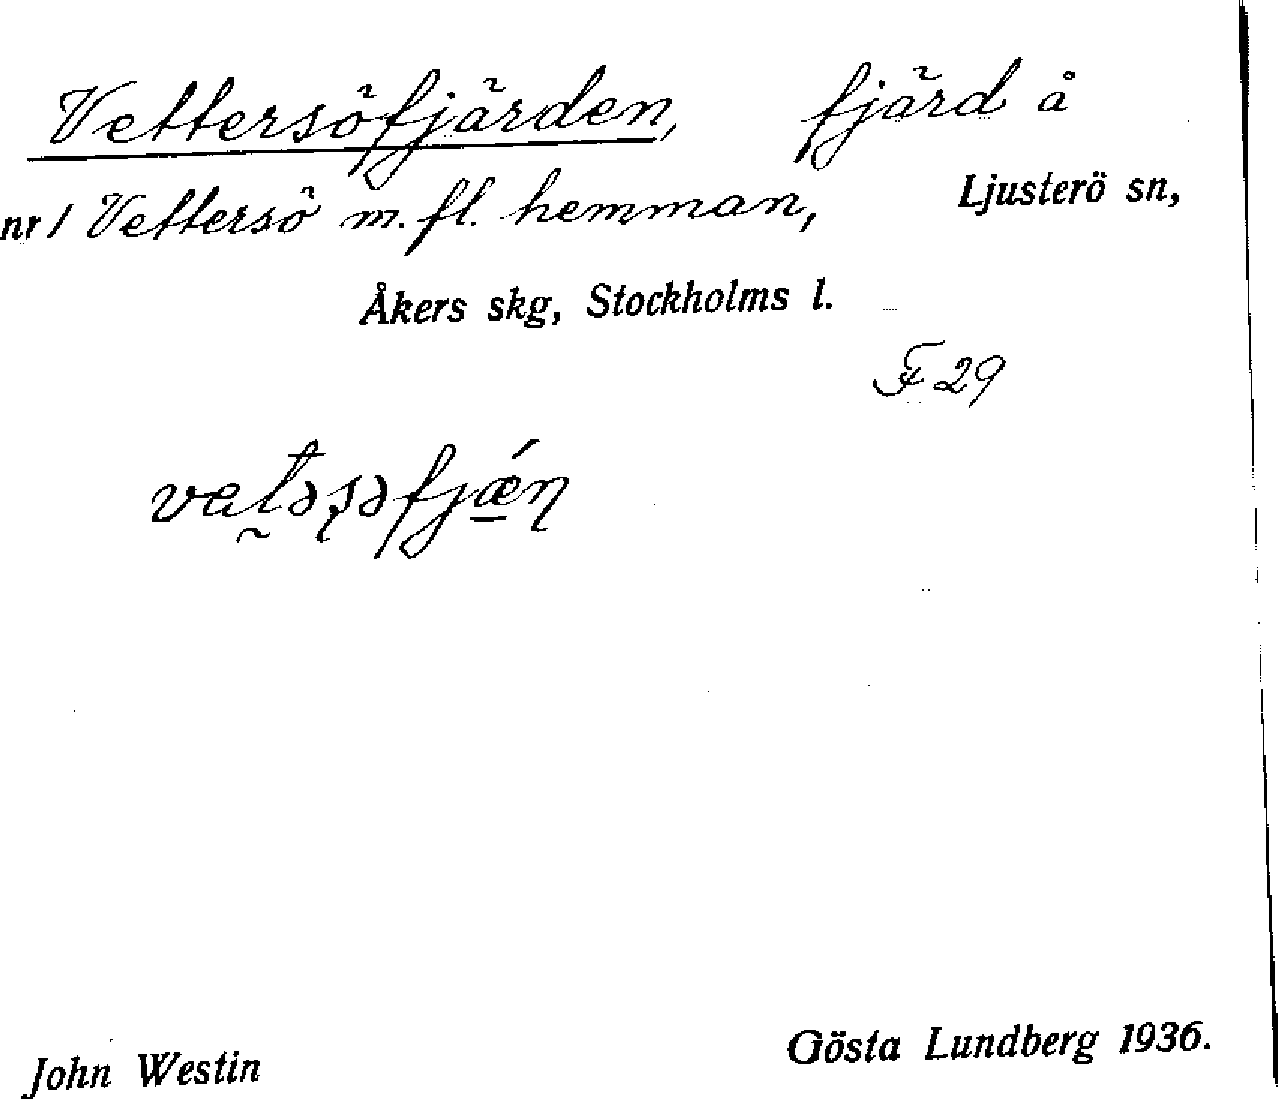 Vettersöfjärden, fjärd å
nr 1 Vettersö m. fl. hemman, Ljusterö sn,
Åkers skg, Stockholms l.
F 29
vat̰əʂəfjǽ̱ɳ
John Westin Gösta Lundberg 1936.